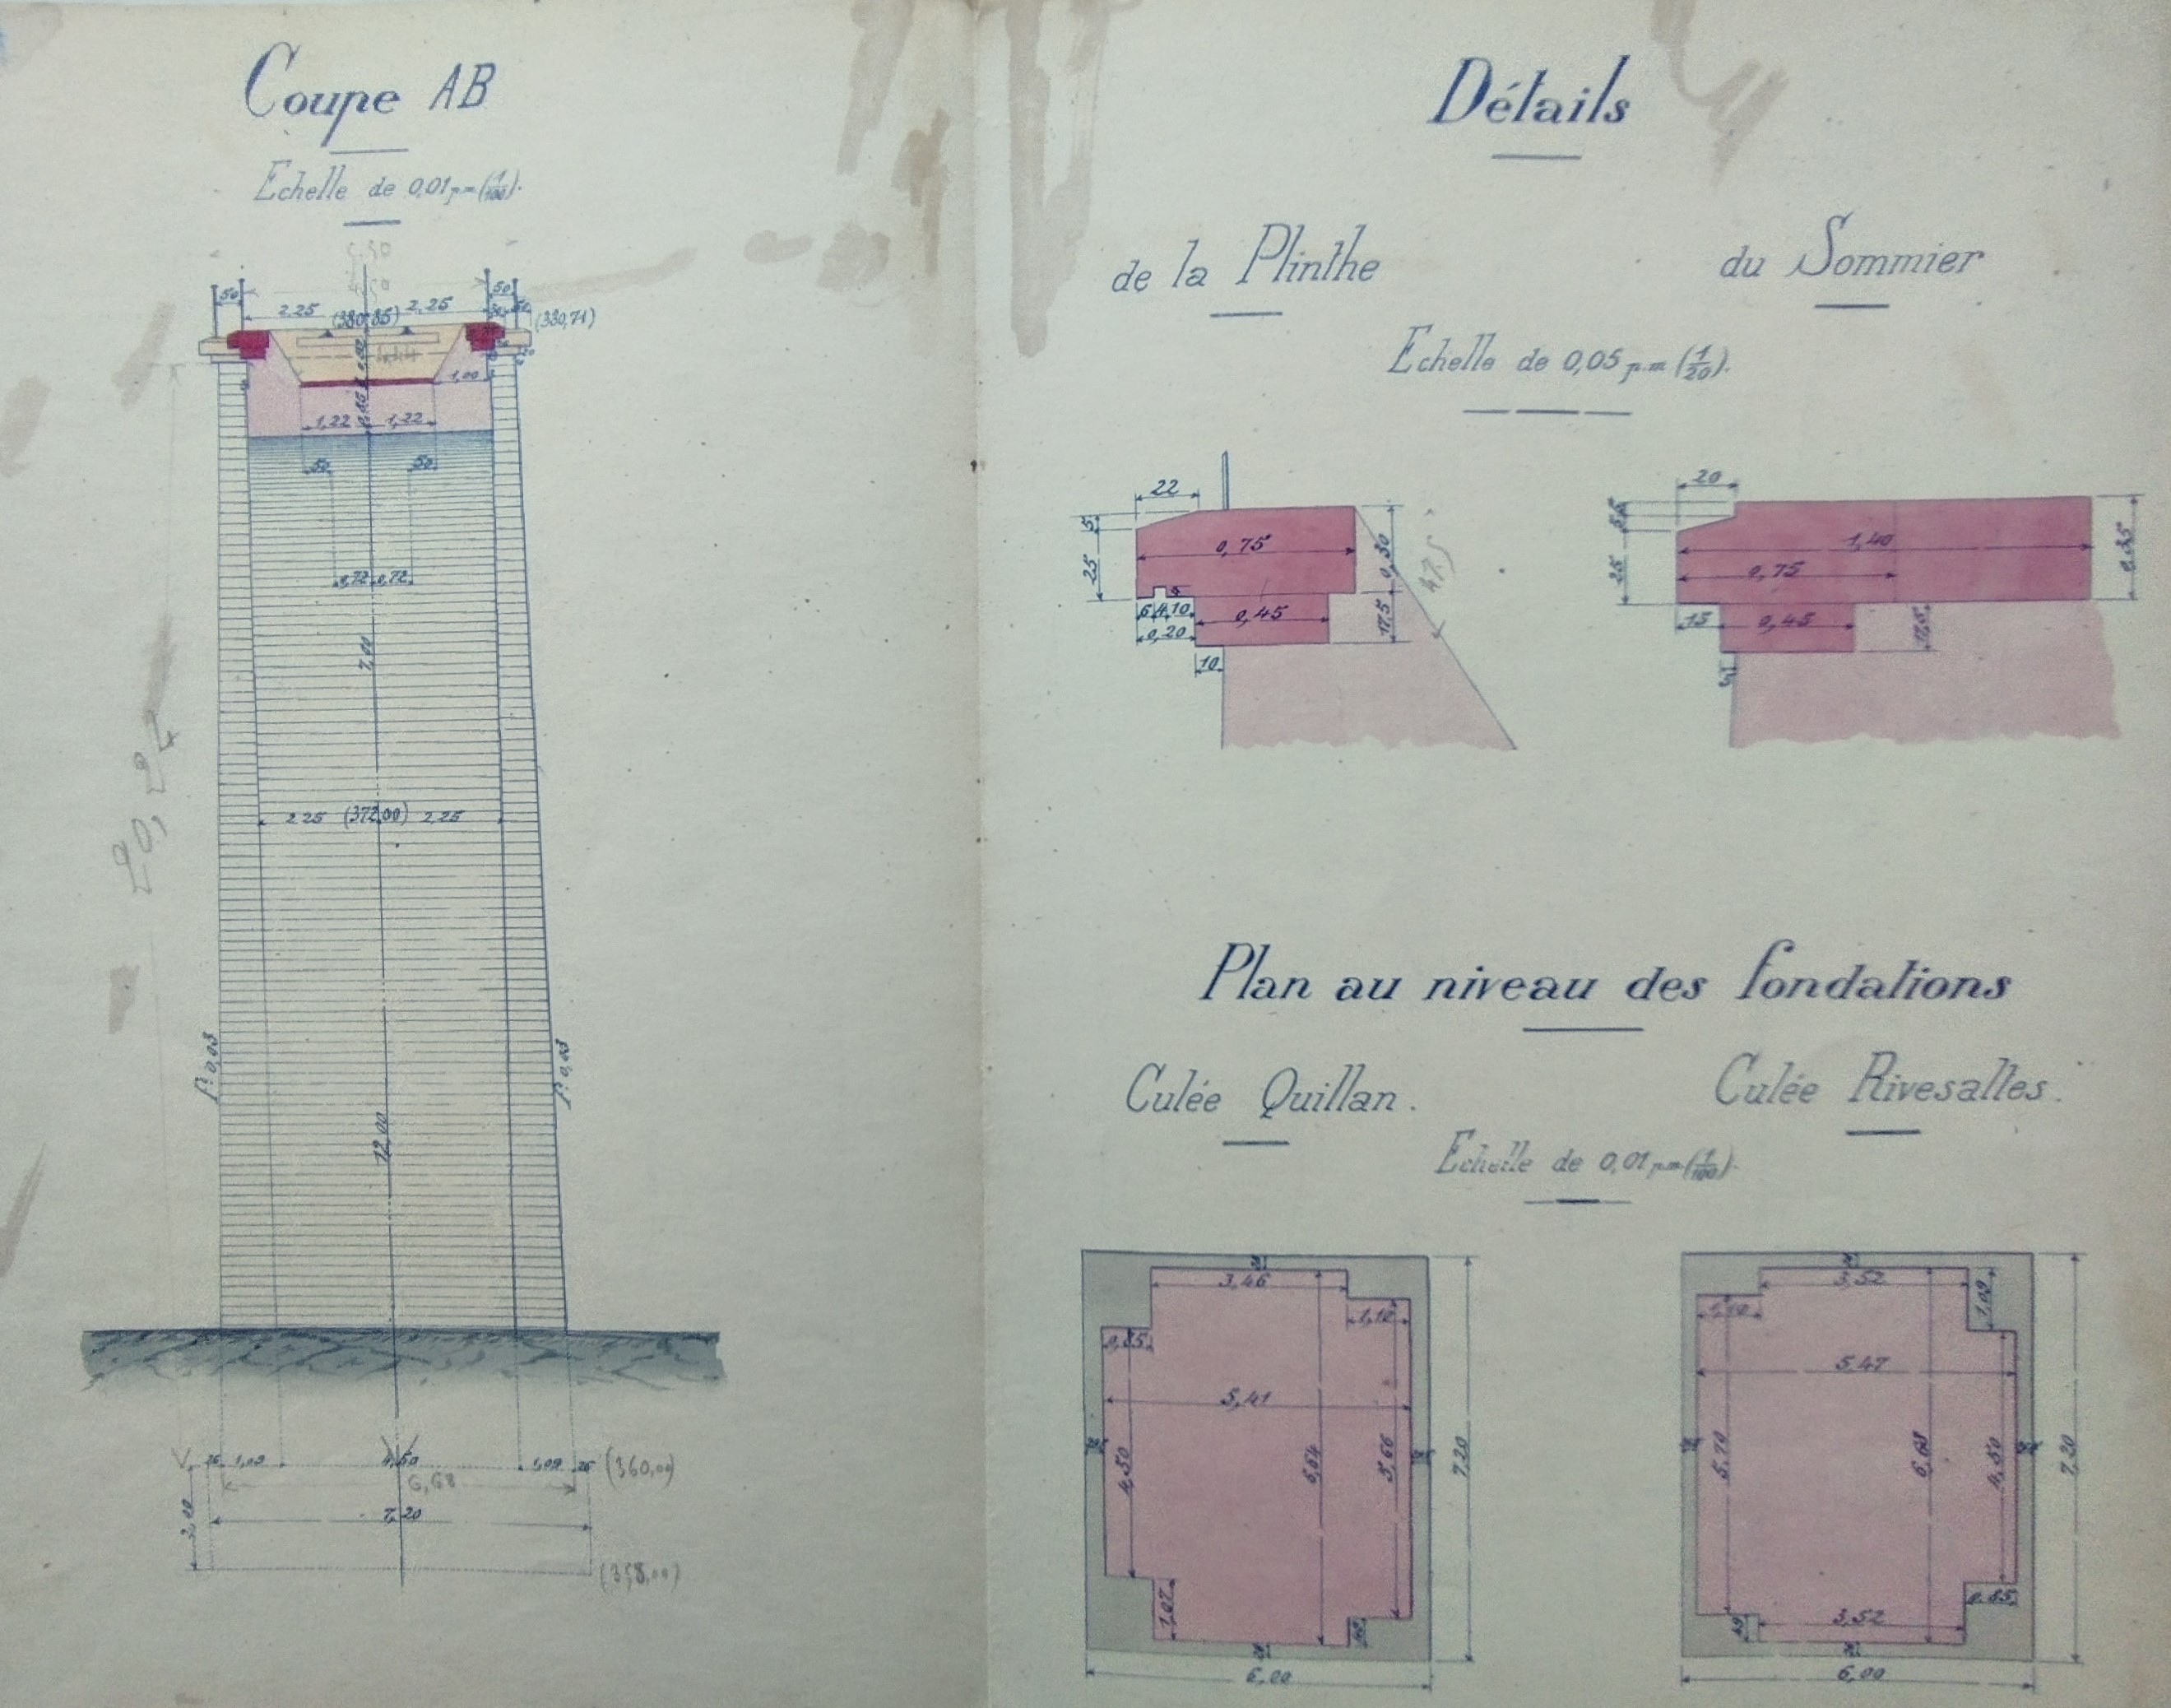 Coupe AB
Echelle de 0,01 p.m (1/100).
50
2,25
(380,85)
2,25
50
(380,71)
1,00
1,22
1,22
50
50
0,72
0,72
7,00
20,24
2,25 (372,00) 2,25
fᵗ 0,03
fᵗ 0,03
12,00
26 1,09 4,50 1,09 26 (360,00)
6,68
7,20
2,00
(358,00)
Détails
de la Plinthe
du Sommier
Echelle de 0,05 p.m (1/20).
22
5
25
0,75
0,30
47.5
6 4 10
0,20
0,45
17,5
10
20
5,5
25
1,40
0,75
0,35
15
0,45
17,5
Plan au niveau des fondations
Culée Quillan.
Culée Rivesaltes.
Echelle de 0,01 p.m (1/100).
3,46
1,12
0,85
5,41
4,50
6,64
5,66
7,20
1,07
49
6,00
3,52
1,09
1,10
5,47
5,70
6,68
4,50
7,20
0,85
49
3,52
6,00